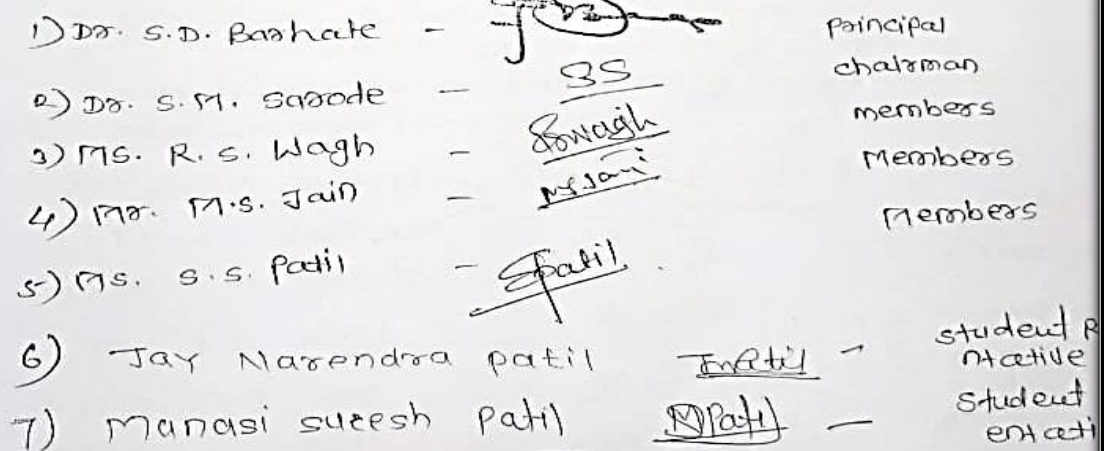 1) Dr. S.D. Barhate - principal
2) Dr. S.M. Sarode - SS chairman
3) Ms. R.S. Wagh - Rswagh members
4) Mr. M.S. Jain - Members
5) Ms. S.S. Patil - Spatil Members
6) Jay Narendra patil - student
ntative
7) Manasi suresh Patil MPatil - Student